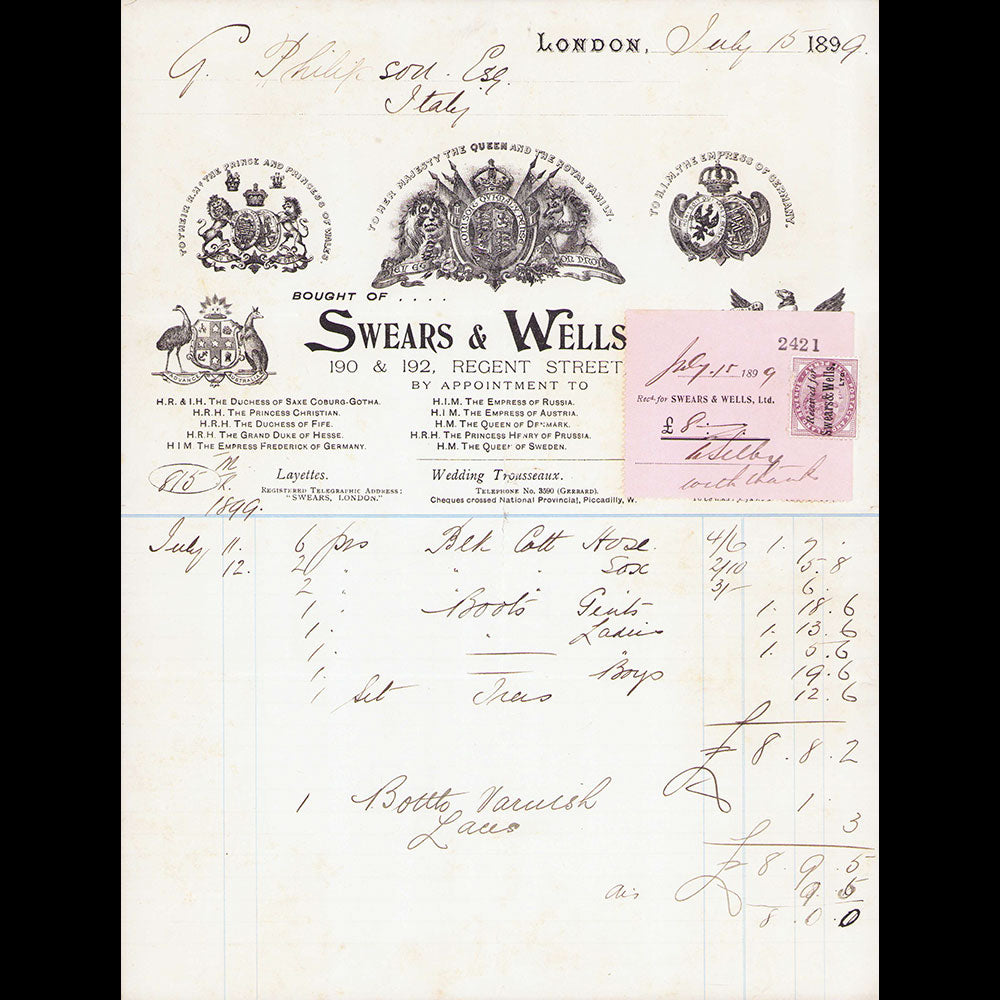 LONDON, July 15 1899.
G. Philipson. Esq.
Italy
TO THEIR R.H'S THE PRINCE AND PRINCESS OF WALES
TO HER MAJESTY THE QUEEN AND THE ROYAL FAMILY.
TO H.I.M. THE EMPRESS OF GERMANY.
ADVANCE AUSTRALIA
BOUGHT OF ....
SWEARS & WELLS
190 & 192, REGENT STREET
BY APPOINTMENT TO
H.R. & I.H. THE DUCHESS OF SAXE COBURG-GOTHA.
H.R.H. THE PRINCESS CHRISTIAN.
H.R.H. THE DUCHESS OF FIFE.
H.R.H. THE GRAND DUKE OF HESSE.
H I M. THE EMPRESS FREDERICK OF GERMANY.
H.I.M. THE EMPRESS OF RUSSIA.
H I M. THE EMPRESS OF AUSTRIA.
H.M. THE QUEEN OF DENMARK.
H.R.H. THE PRINCESS HENRY OF PRUSSIA.
H.M. THE QUEEN OF SWEDEN.
2421
July 15 1899
Recd. for SWEARS & WELLS, Ltd.
£ 8. — . —
Selby
with thanks
Received for
Swears & Wells,
LTD.
815
Layettes.
REGISTERED TELEGRAPHIC ADDRESS:
"SWEARS, LONDON."
Wedding Trousseaux.
TELEPHONE No. 3590 (GERRARD).
Cheques crossed National Provincial, Piccadilly, W.
1899.
July 11. 6 prs Blk Cott Hose. 4/6 1. 7. .
12. 2 " " " Sox 2/10 5. 8
2 " 3/- 6.
1 " Boots Gents 1. 18. 6
1. " Ladies 1. 13. 6
1. 1. 5. 6
1. " Boys 19. 6
1 Set Trees 12. 6
£ 8. 8. 2
1 Bottle Varnish 1.
Laces 3
£ 8. 9. 5
dis 9. 5
8. 0. 0